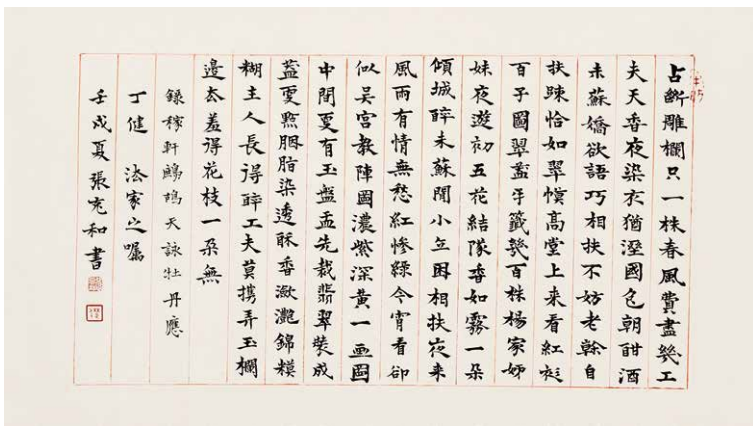 占斷雕欄只一株春風費盡幾工
夫天香夜染衣猶溼國色朝酣酒
未蘇嬌欲語巧相扶不妨老榦自
扶疎恰如翠幙高堂上來看紅衫
百子圖翠蓋牙籤幾百株楊家姊
妹夜遊初五花結隊香如霧一朵
傾城醉未蘇閒小立困相扶夜來
風雨有情無愁紅慘綠今宵看卻
似吳宮教陣圖濃紫深黃一畫圖
中間更有玉盤盂先裁翡翠裝成
蓋更點胭脂染透酥香瀲灩錦糢
糊主人長得醉工夫莫攜弄玉欄
邊去羞得花枝一朵無
錄稼軒鷓鴣天詠牡丹應
丁健 法家之囑
壬戌夏張充和書